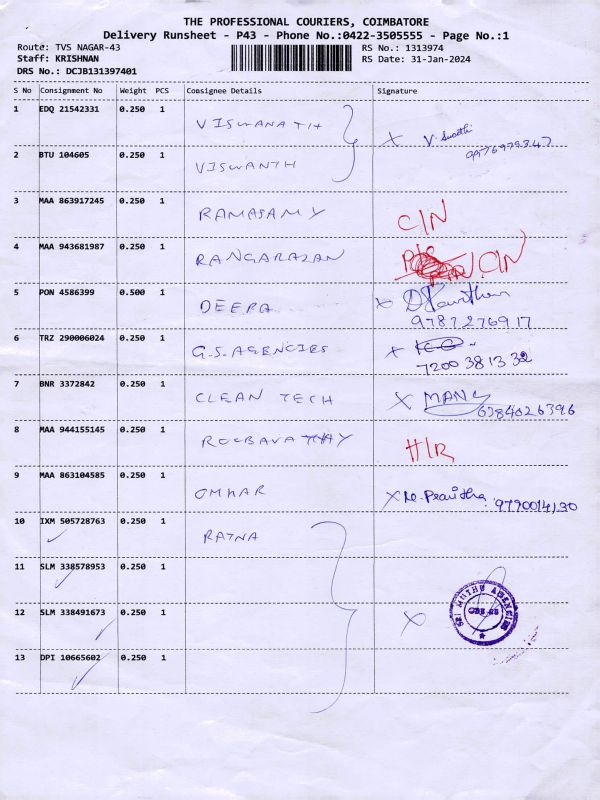 THE PROFESSIONAL COURIERS, COIMBATORE
Delivery Runsheet - P43 - Phone No.:0422-3505555 - Page No.:1
Route: TVS NAGAR-43 RS No.: 1313974
Staff: KRISHNAN RS Date: 31-Jan-2024
DRS No.: DCJB131397401
S No Consignment No Weight PCS Consignee Details Signature
1 EDQ 21542331 0.250 1 VISWANATH
2 BTU 104605 0.250 1 VISWANTH
3 MAA 863917245 0.250 1 RAMASAMY C/N
4 MAA 943681987 0.250 1 RANGARAJAN C/N
5 PON 4586399 0.500 1 DEEPA
9787276917
6 TRZ 290006024 0.250 1 G.S.AGENCIES
7200381332
7 BNR 3372842 0.250 1 CLEAN TECH X MANI
6384026396
8 MAA 944155145 0.250 1 H/R
9 MAA 863104585 0.250 1 OMKAR X
9790014130
10 IXM 505728763 0.250 1 RATNA
11 SLM 338578953 0.250 1
12 SLM 338491673 0.250 1 X SRI MUTHU AGENCIES
13 DPI 10665602 0.250 1